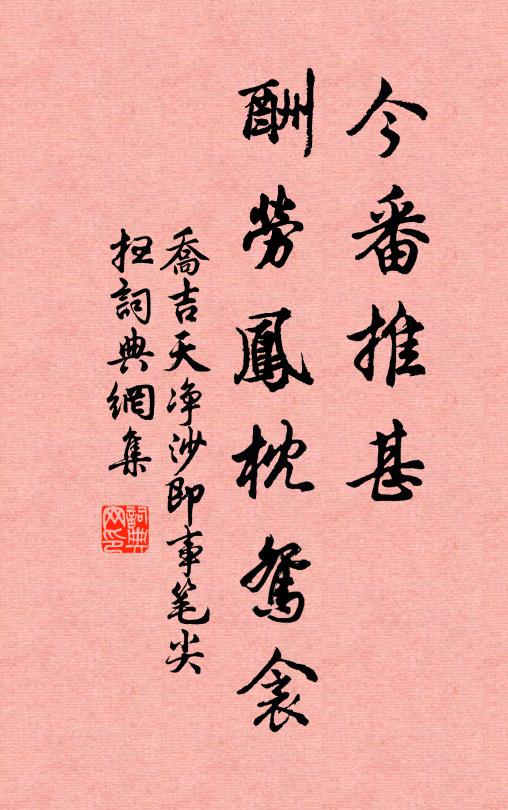 今番推甚
酬勞鳳枕鴛衾
喬吉天净沙即事笔尖
扭詞典網集
詞典网印